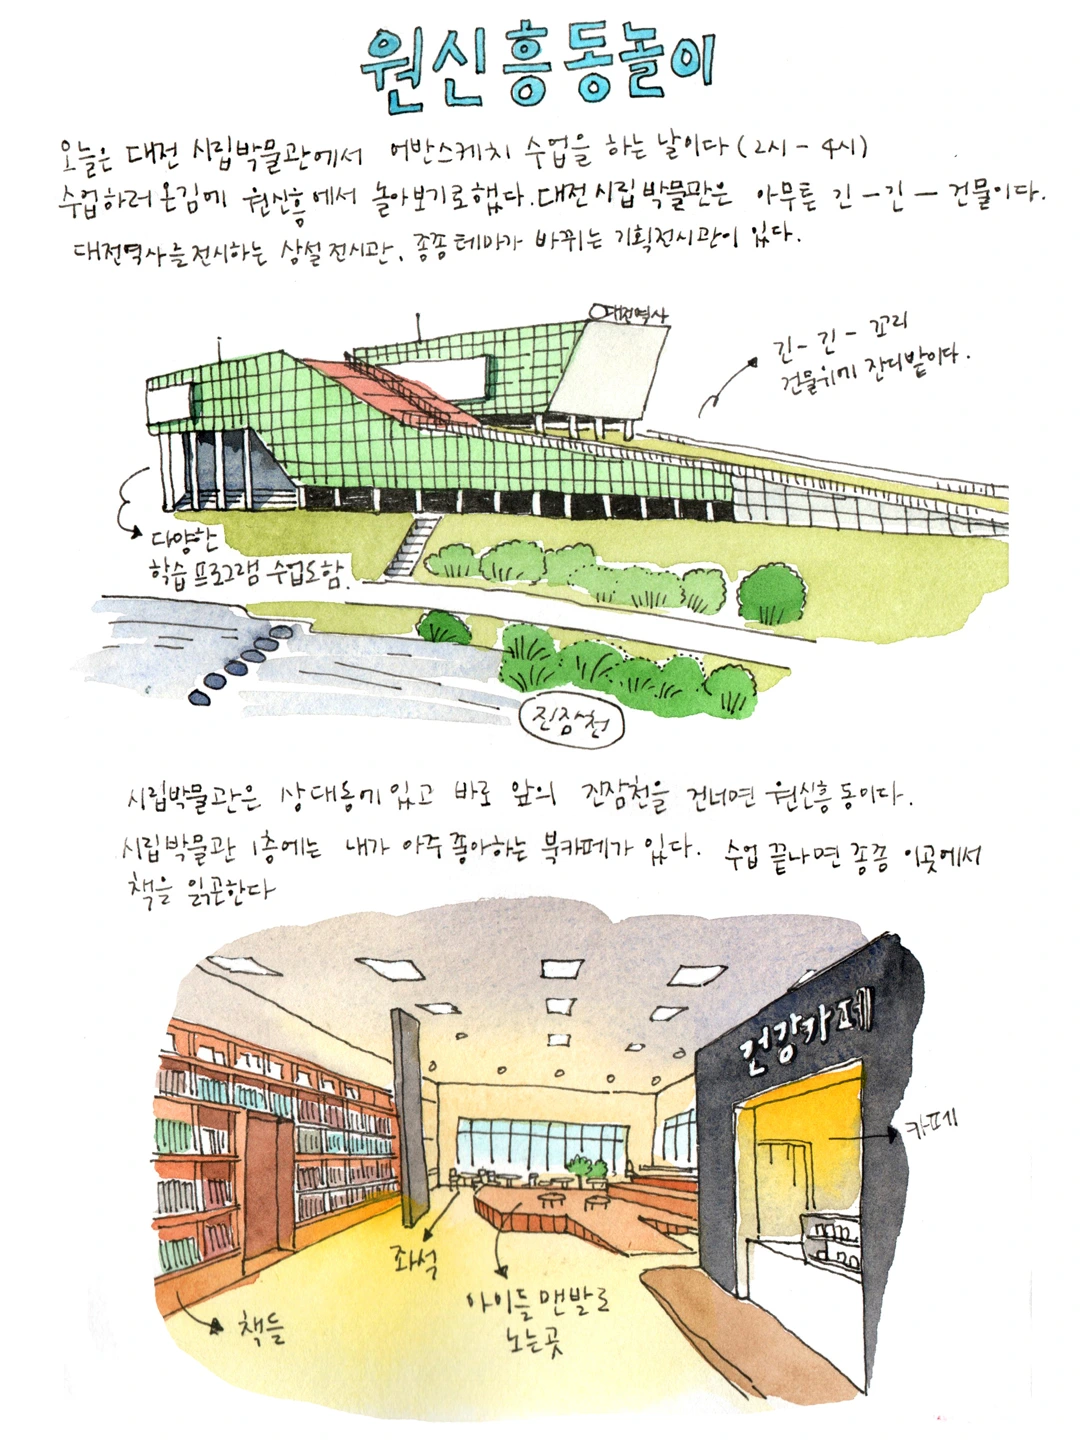 원신흥동놀이
오늘은 대전 시립박물관에서 어반스케치 수업을 하는 날이다 (2시 - 4시)
수업하러 온김에 원신흥에서 놀아보기로했다. 대전시립박물관은 아무튼 긴-긴- 건물이다.
대전역사를전시하는 상설전시관, 종종 테마가 바뀌는 기획전시관이 있다.
대전역사
긴-긴- 꼬리
건물위에 잔디밭이다.
다양한
학습 프로그램 수업도함.
진잠천
시립박물관은 상대동에 있고 바로 앞의 진잠천을 건너면 원신흥동이다.
시립박물관 1층에는 내가 아주 좋아하는 북카페가 있다. 수업 끝나면 종종 이곳에서
책을 읽곤한다
건강카페
카페
좌석
아이들 맨발로
노는곳
책들